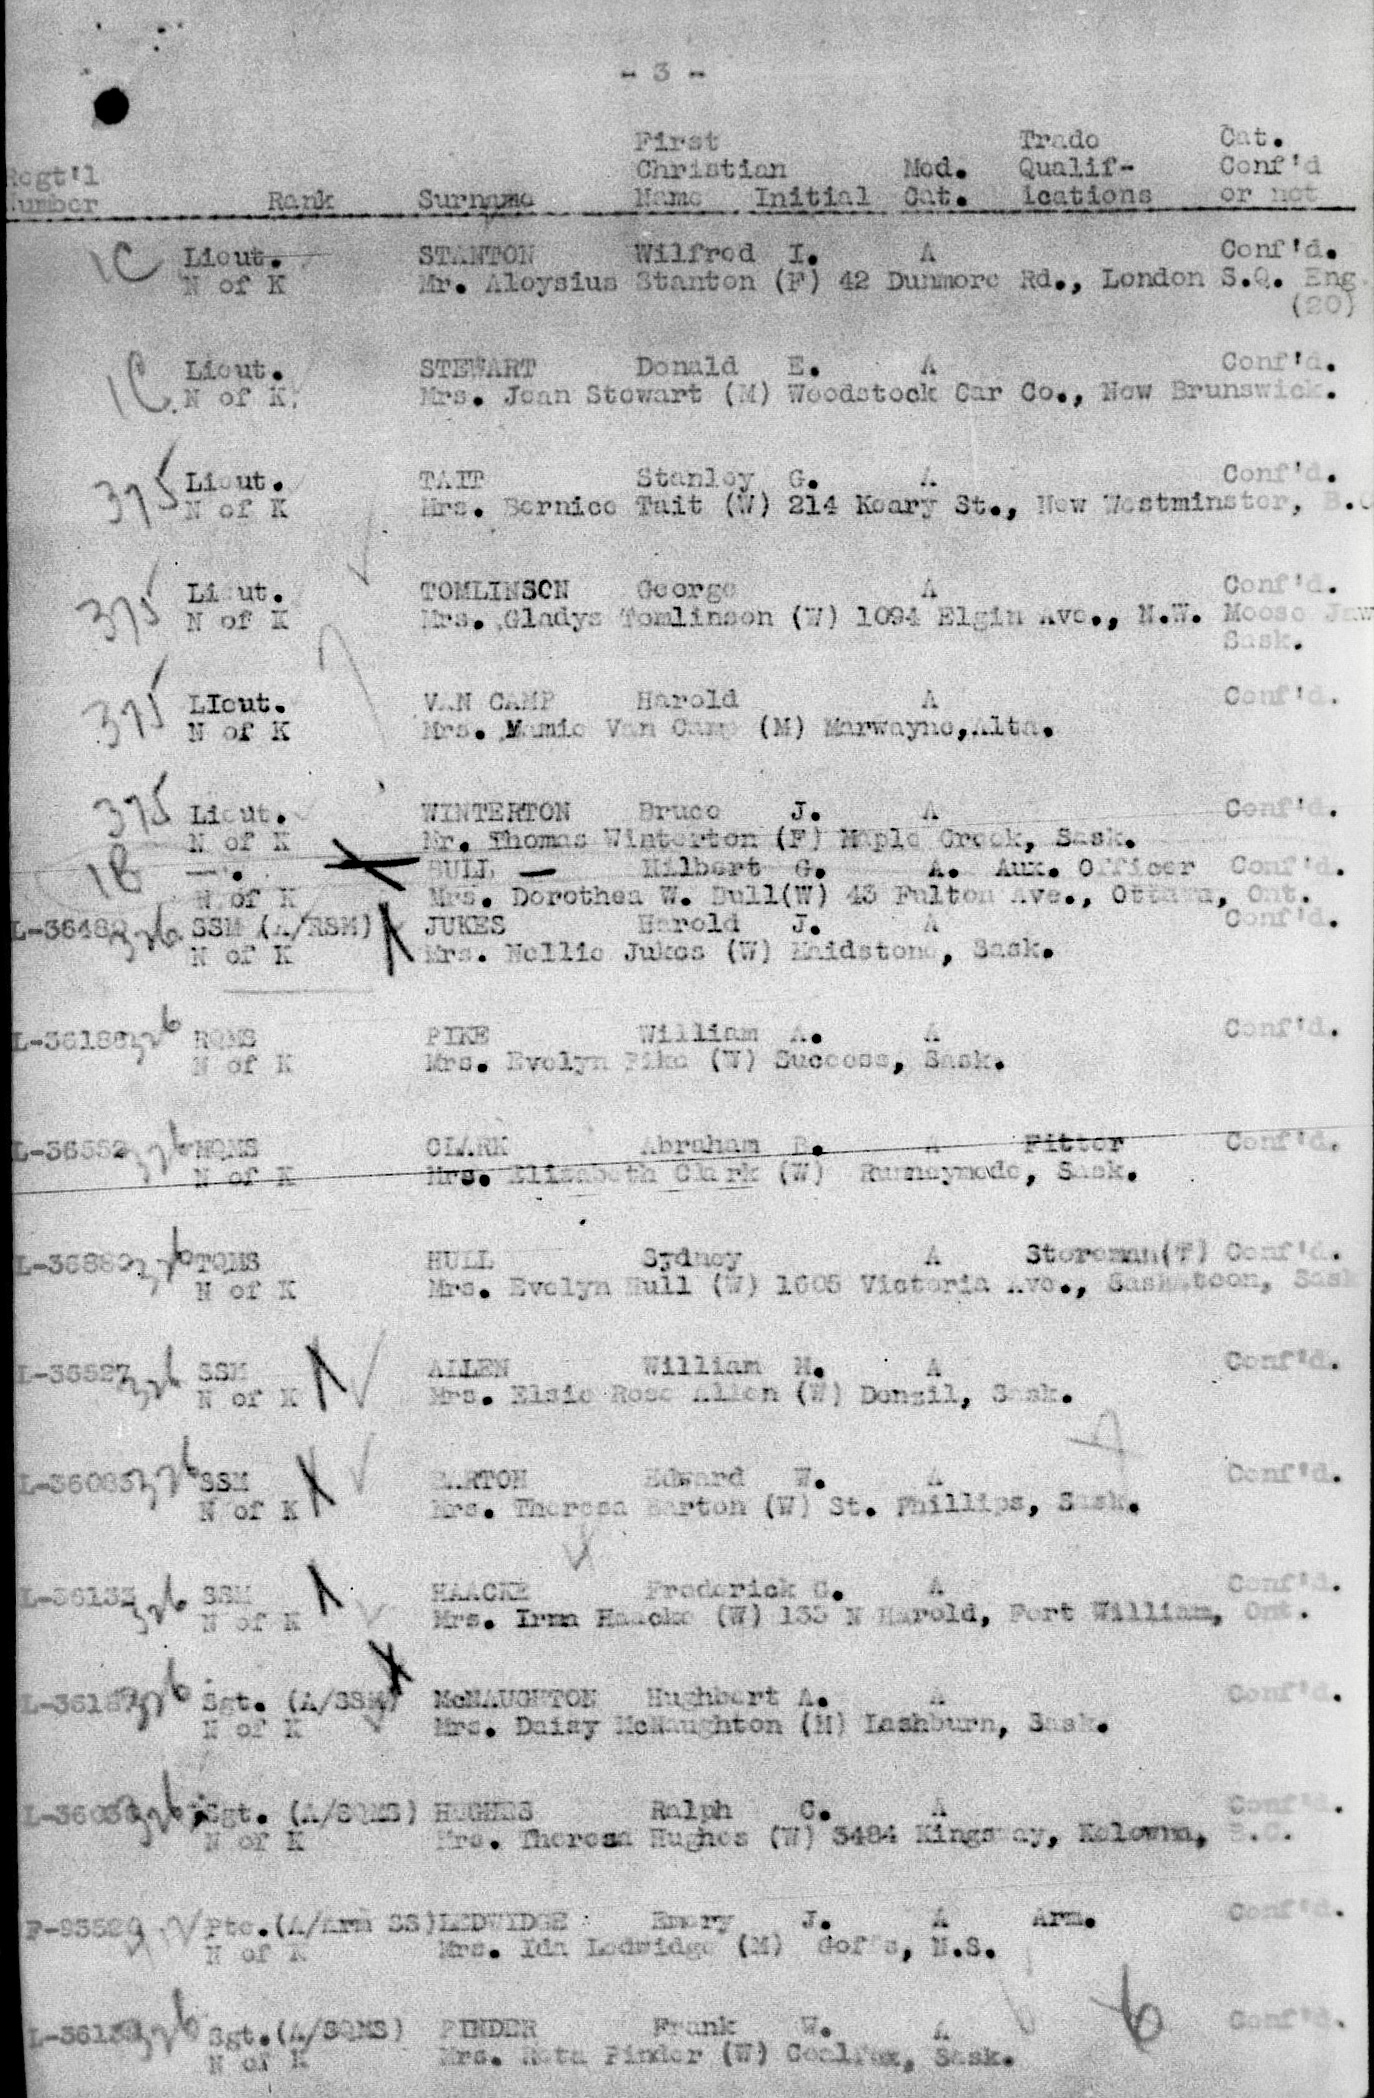 - 3 -
First Trade Cat.
Christian Med. Qualif- Conf'd
Regt'l Number Rank Surname Name Initial Cat. ications or not
1C Lieut. STANTON Wilfred I. A Conf'd.
N of K Mr. Aloysius Stanton (F) 42 Dunmore Rd., London S.Q. Eng.
(20)
1C Lieut. STEWART Donald E. A Conf'd.
N of K. Mrs. Jean Stewart (M) Woodstock Car Co., New Brunswick.
375 Lieut. TAIT Stanley G. A Conf'd.
N of K Mrs. Bernice Tait (W) 214 Keary St., New Westminster, B.C
375 Lieut. TOMLINSON George A Conf'd.
N of K Mrs. Gladys Tomlinson (W) 1094 Elgin Ave., N.W. Moose Jaw
Sask.
375 LIeut. VAN CAMP Harold A Conf'd.
N of K Mrs. Mamie Van Camp (M) Marwayne, Alta.
375 Lieut. WINTERTON Bruce J. A Conf'd.
N of K Mr. Thomas Winterton (F) Maple Creek, Sask.
1B —". BULL — Hilbert G. A. Aux. Officer Conf'd.
N of K Mrs. Dorothea W. Bull(W) 43 Fulton Ave., Ottawa, Ont.
326 SSM (A/RSM) JUKES Harold J. A Conf'd.
N of K Mrs. Nellie Jukes (W) Maidstone, Sask.
L-36186 326 RQMS PIKE William A. A Conf'd.
N of K Mrs. Evelyn Pike (W) Success, Sask.
L-36552 326 MQMS CLARK Abraham B. A Fitter Conf'd.
N of K Mrs. Elizabeth Clark (W) Runneymede, Sask.
326 TQMS HULL Sydney A Storeman(T) Conf'd.
N of K Mrs. Evelyn Hull (W) 1605 Victoria Ave., Saskatoon, Sask
L-36527 326 SSM ALLEN William M. A Conf'd.
N of K Mrs. Elsie Rose Allen (W) Denzil, Sask.
L-36083 326 SSM BARTON Edward W. A Conf'd.
N of K Mrs. Theresa Barton (W) St. Phillips, Sask.
L-36133 326 SSM HAACKE Frederick C. A Conf'd.
N of K Mrs. Irma Haacke (W) 135 N Harold, Fort William, Ont.
L-36187 326 Sgt. (A/SSM) McNAUGHTON Hughbert A. A Conf'd.
N of K Mrs. Daisy McNaughton (M) Lashburn, Sask.
326 Sgt. (A/SQMS) HUGHES Ralph C. A Conf'd.
N of K Mrs. Theresa Hughes (W) 3484 Kingsway, Kelowna, B.C.
Pte.(A/Arm SS) LEDWIDGE Emery J. A Arm. Conf'd.
N of K Mrs. Ida Ledwidge (M) Goffs, N.S.
326 Sgt.(A/SQMS) PINDER Frank W. A Conf'd.
N of K Mrs. Reta Pinder (W) Coalfax, Sask.